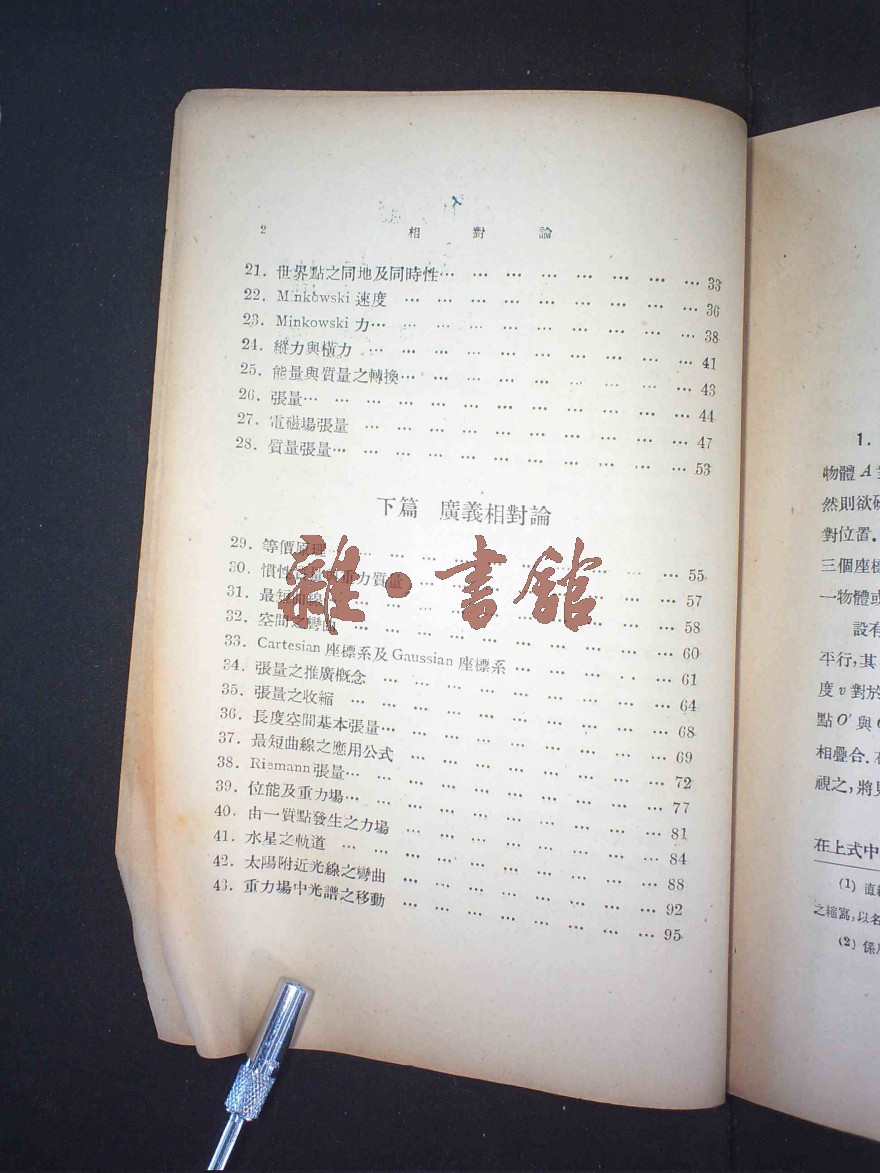 2 相對論
21. 世界點之同地及同時性… … … … … … … … 33
22. Minkowski 速度 … … … … … … … … 36
23. Minkowski 力… … … … … … … … … 38
24. 縱力與橫力 … … … … … … … … … 41
25. 能量與質量之轉換… … … … … … … … 43
26. 張量… … … … … … … … … … … 44
27. 電磁場張量 … … … … … … … … … 47
28. 質量張量… … … … … … … … … … 53
下篇 廣義相對論
29. 等價原理 … … … … … … … … … 55
30. 慣性 重力質量 … … … … … … … 57
31. 最短曲線 … … … … … … … … … 58
32. 空間之彎曲 … … … … … … … … … 60
33. Cartesian 座標系及 Gaussian 座標系 … … … … … 61
34. 張量之推廣概念 … … … … … … … … 64
35. 張量之收縮 … … … … … … … … … 68
36. 長度空間基本張量… … … … … … … … 69
37. 最短曲線之應用公式 … … … … … … … 72
38. Riemann 張量… … … … … … … … … 77
39. 位能及重力場… … … … … … … … … 81
40. 由一質點發生之力場 … … … … … … … 84
41. 水星之軌道 … … … … … … … … … 88
42. 太陽附近光線之彎曲 … … … … … … … 92
43. 重力場中光譜之移動 … … … … … … … 95
雜·書館
1.
物體 A
然則欲
對位置.
三個座標
一物體或
設有
平行,其
度 v 對於
點 O′ 與
相疊合.
視之,將
在上式中
(1) 直
之縮寫,以名
(2) 係